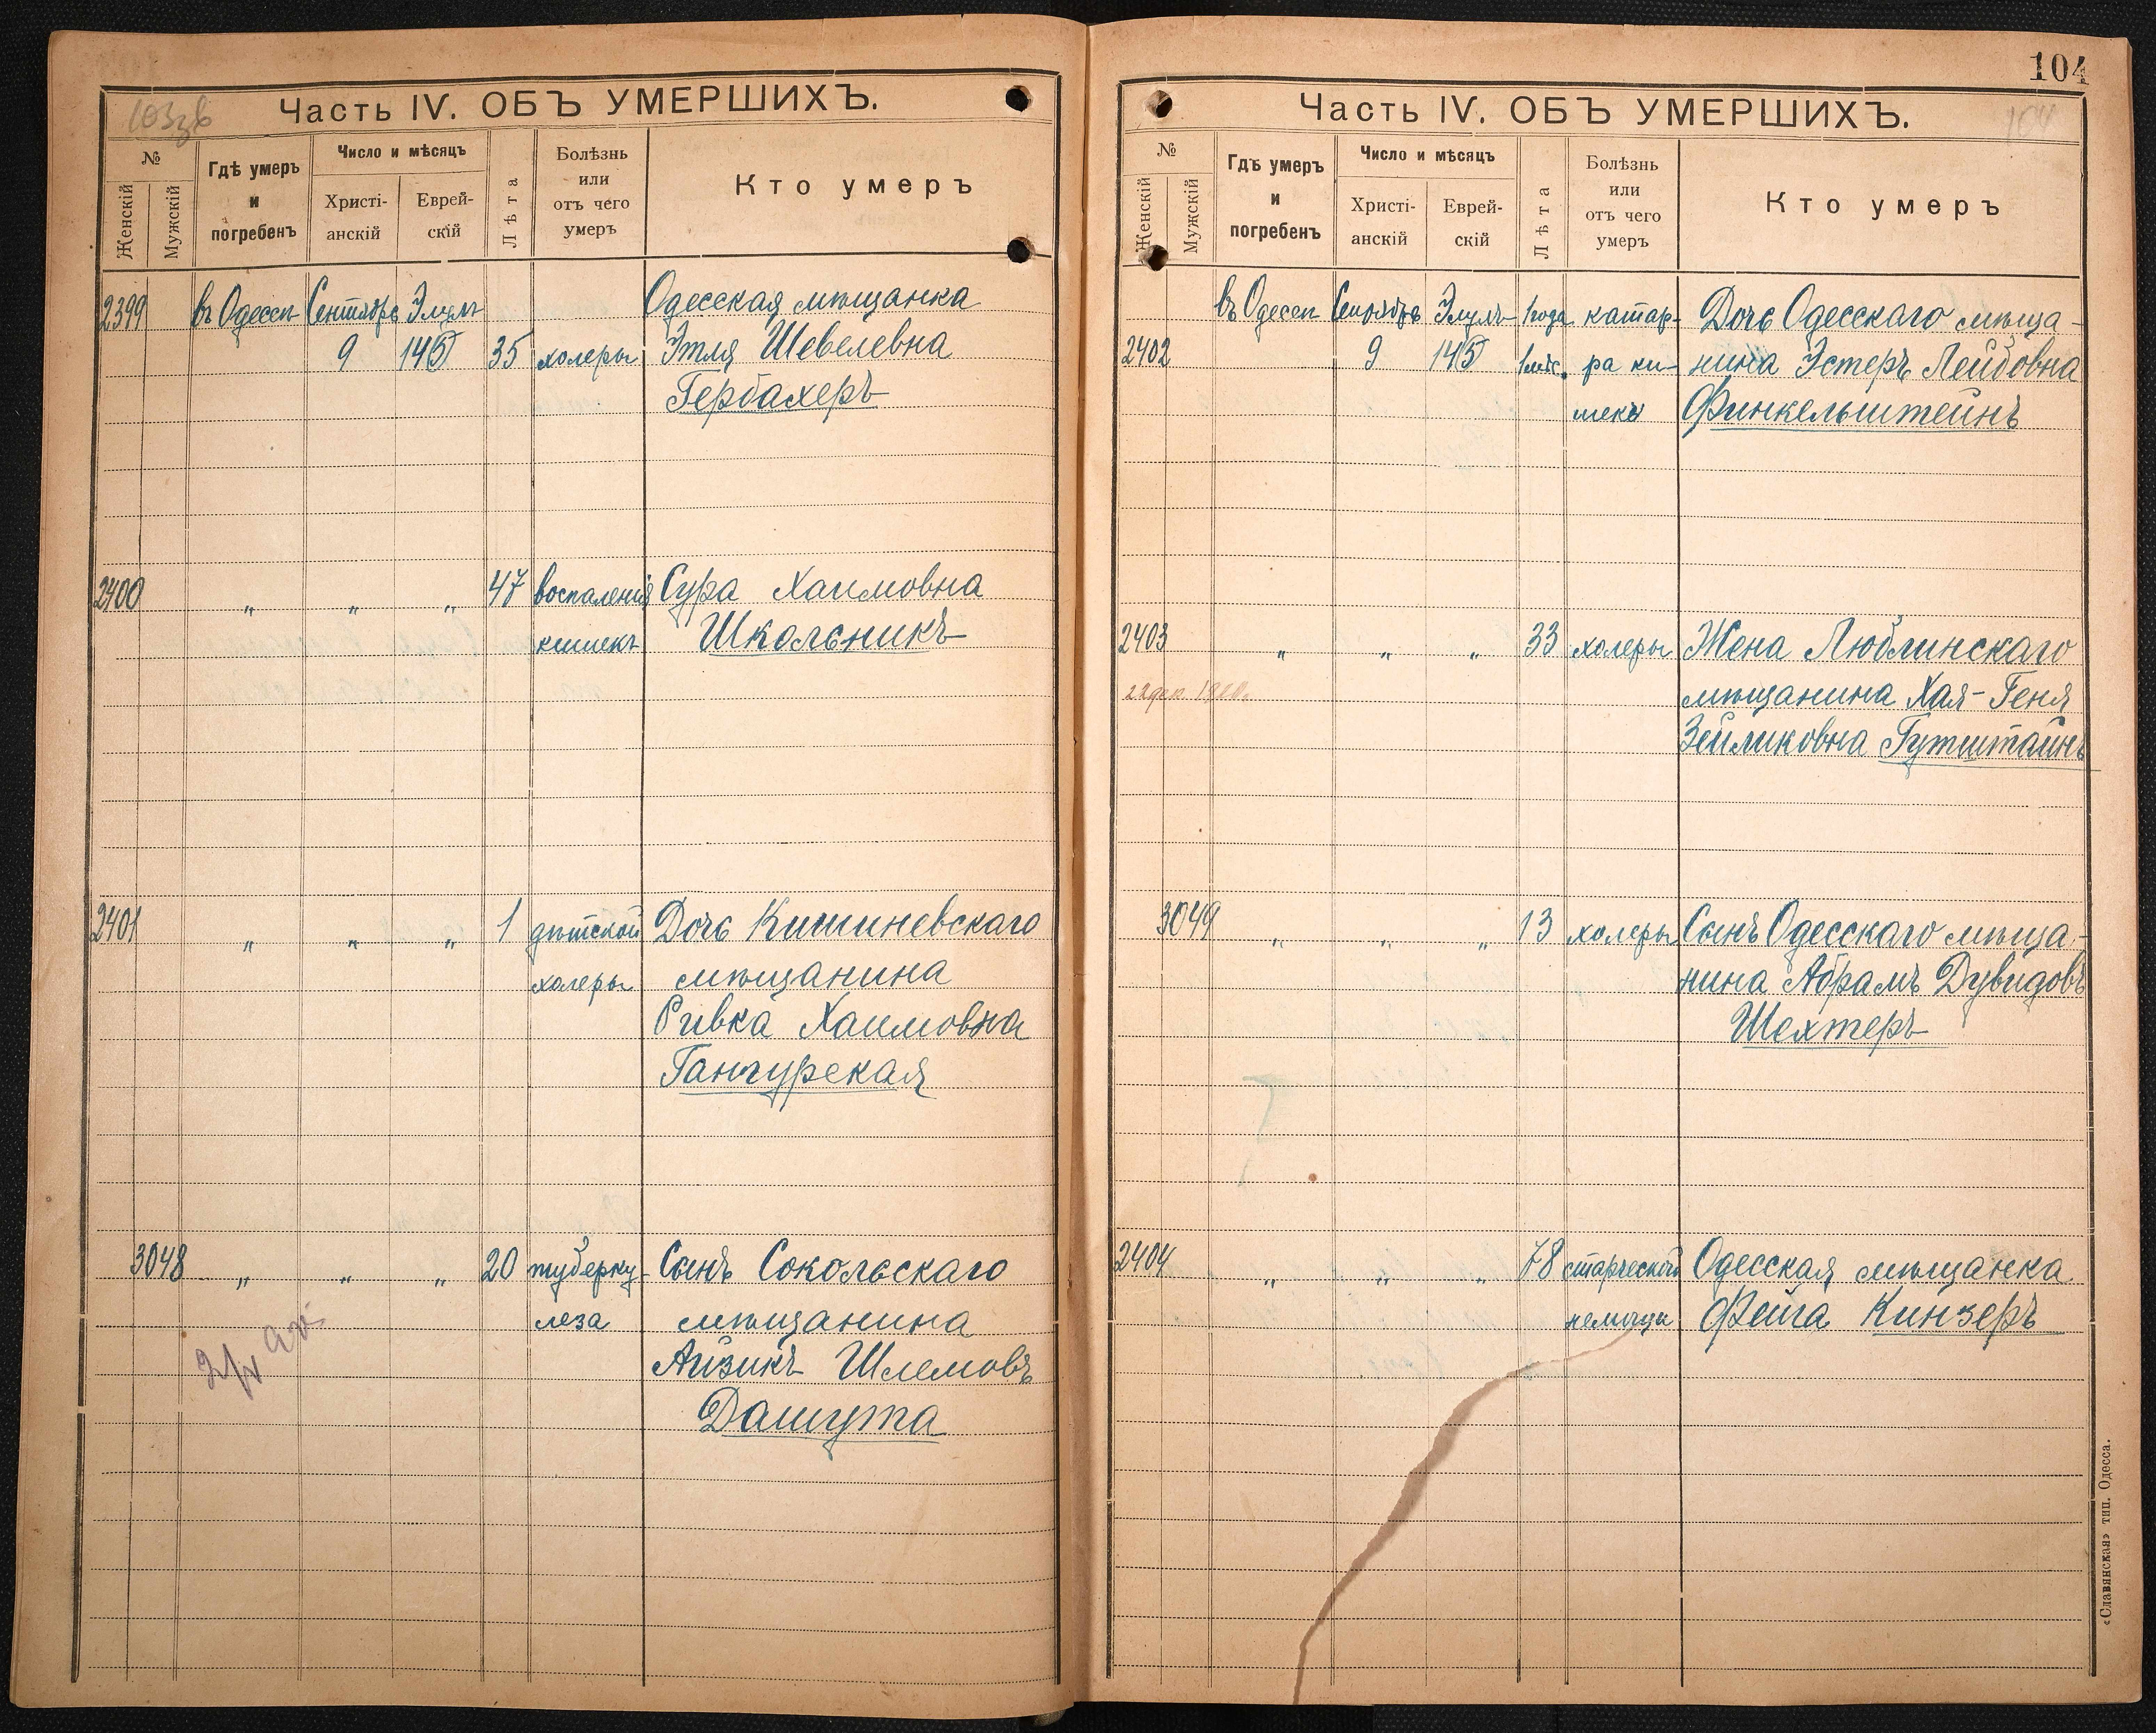 Часть IV. ОБЪ УМЕРШИХЪ.
№
Женскій
Мужскій
Гдѣ умеръ
и
погребенъ
Число и мѣсяцъ
Христі-
анскій
Еврей-
скій
Лѣта
Болѣзнь
или
отъ чего
умеръ
Кто умеръ
2399 въ Одессѣ Сентябрь Элулъ Одесская мѣщанка
9 35 холеры Этля Шевелевна
Гербахеръ
2400 „ „ „ 47 воспаленія Сура Хаимовна
кишекъ Школьникъ
2401 „ „ „ 1 дѣтской Дочь Кишиневскаго
холеры мѣщанина
Ривка Хаимовна
Гангурская
3048 „ „ „ 20 туберку- Сынъ Сокольскаго
леза мѣщанина
Айзикъ Шлемовъ
Дашута
104
Часть IV. ОБЪ УМЕРШИХЪ.
104
№
Женскій
Мужскій
Гдѣ умеръ
и
погребенъ
Число и мѣсяцъ
Христі-
анскій
Еврей-
скій
Лѣта
Болѣзнь
или
отъ чего
умеръ
Кто умеръ
въ Одессѣ Сентябрь Элулъ 1 года катар- Дочь Одесскаго мѣща-
2402 9 1 мѣс. ра ки- нина Эстеръ Лейбовна
шекъ Финкельштейнъ
2403 „ „ „ 33 холеры Жена Люблинскаго
мѣщанина Хая-Геня
Зейликовна Гутштайнъ
3049 „ „ „ 13 холеры Сынъ Одесскаго мѣща-
нина Абрамъ Дувидовъ
Шехтеръ
2404 „ „ „ 78 старческой Одесская мѣщанка
немощи Фейга Кинзеръ
«Славянская» тип. Одесса.